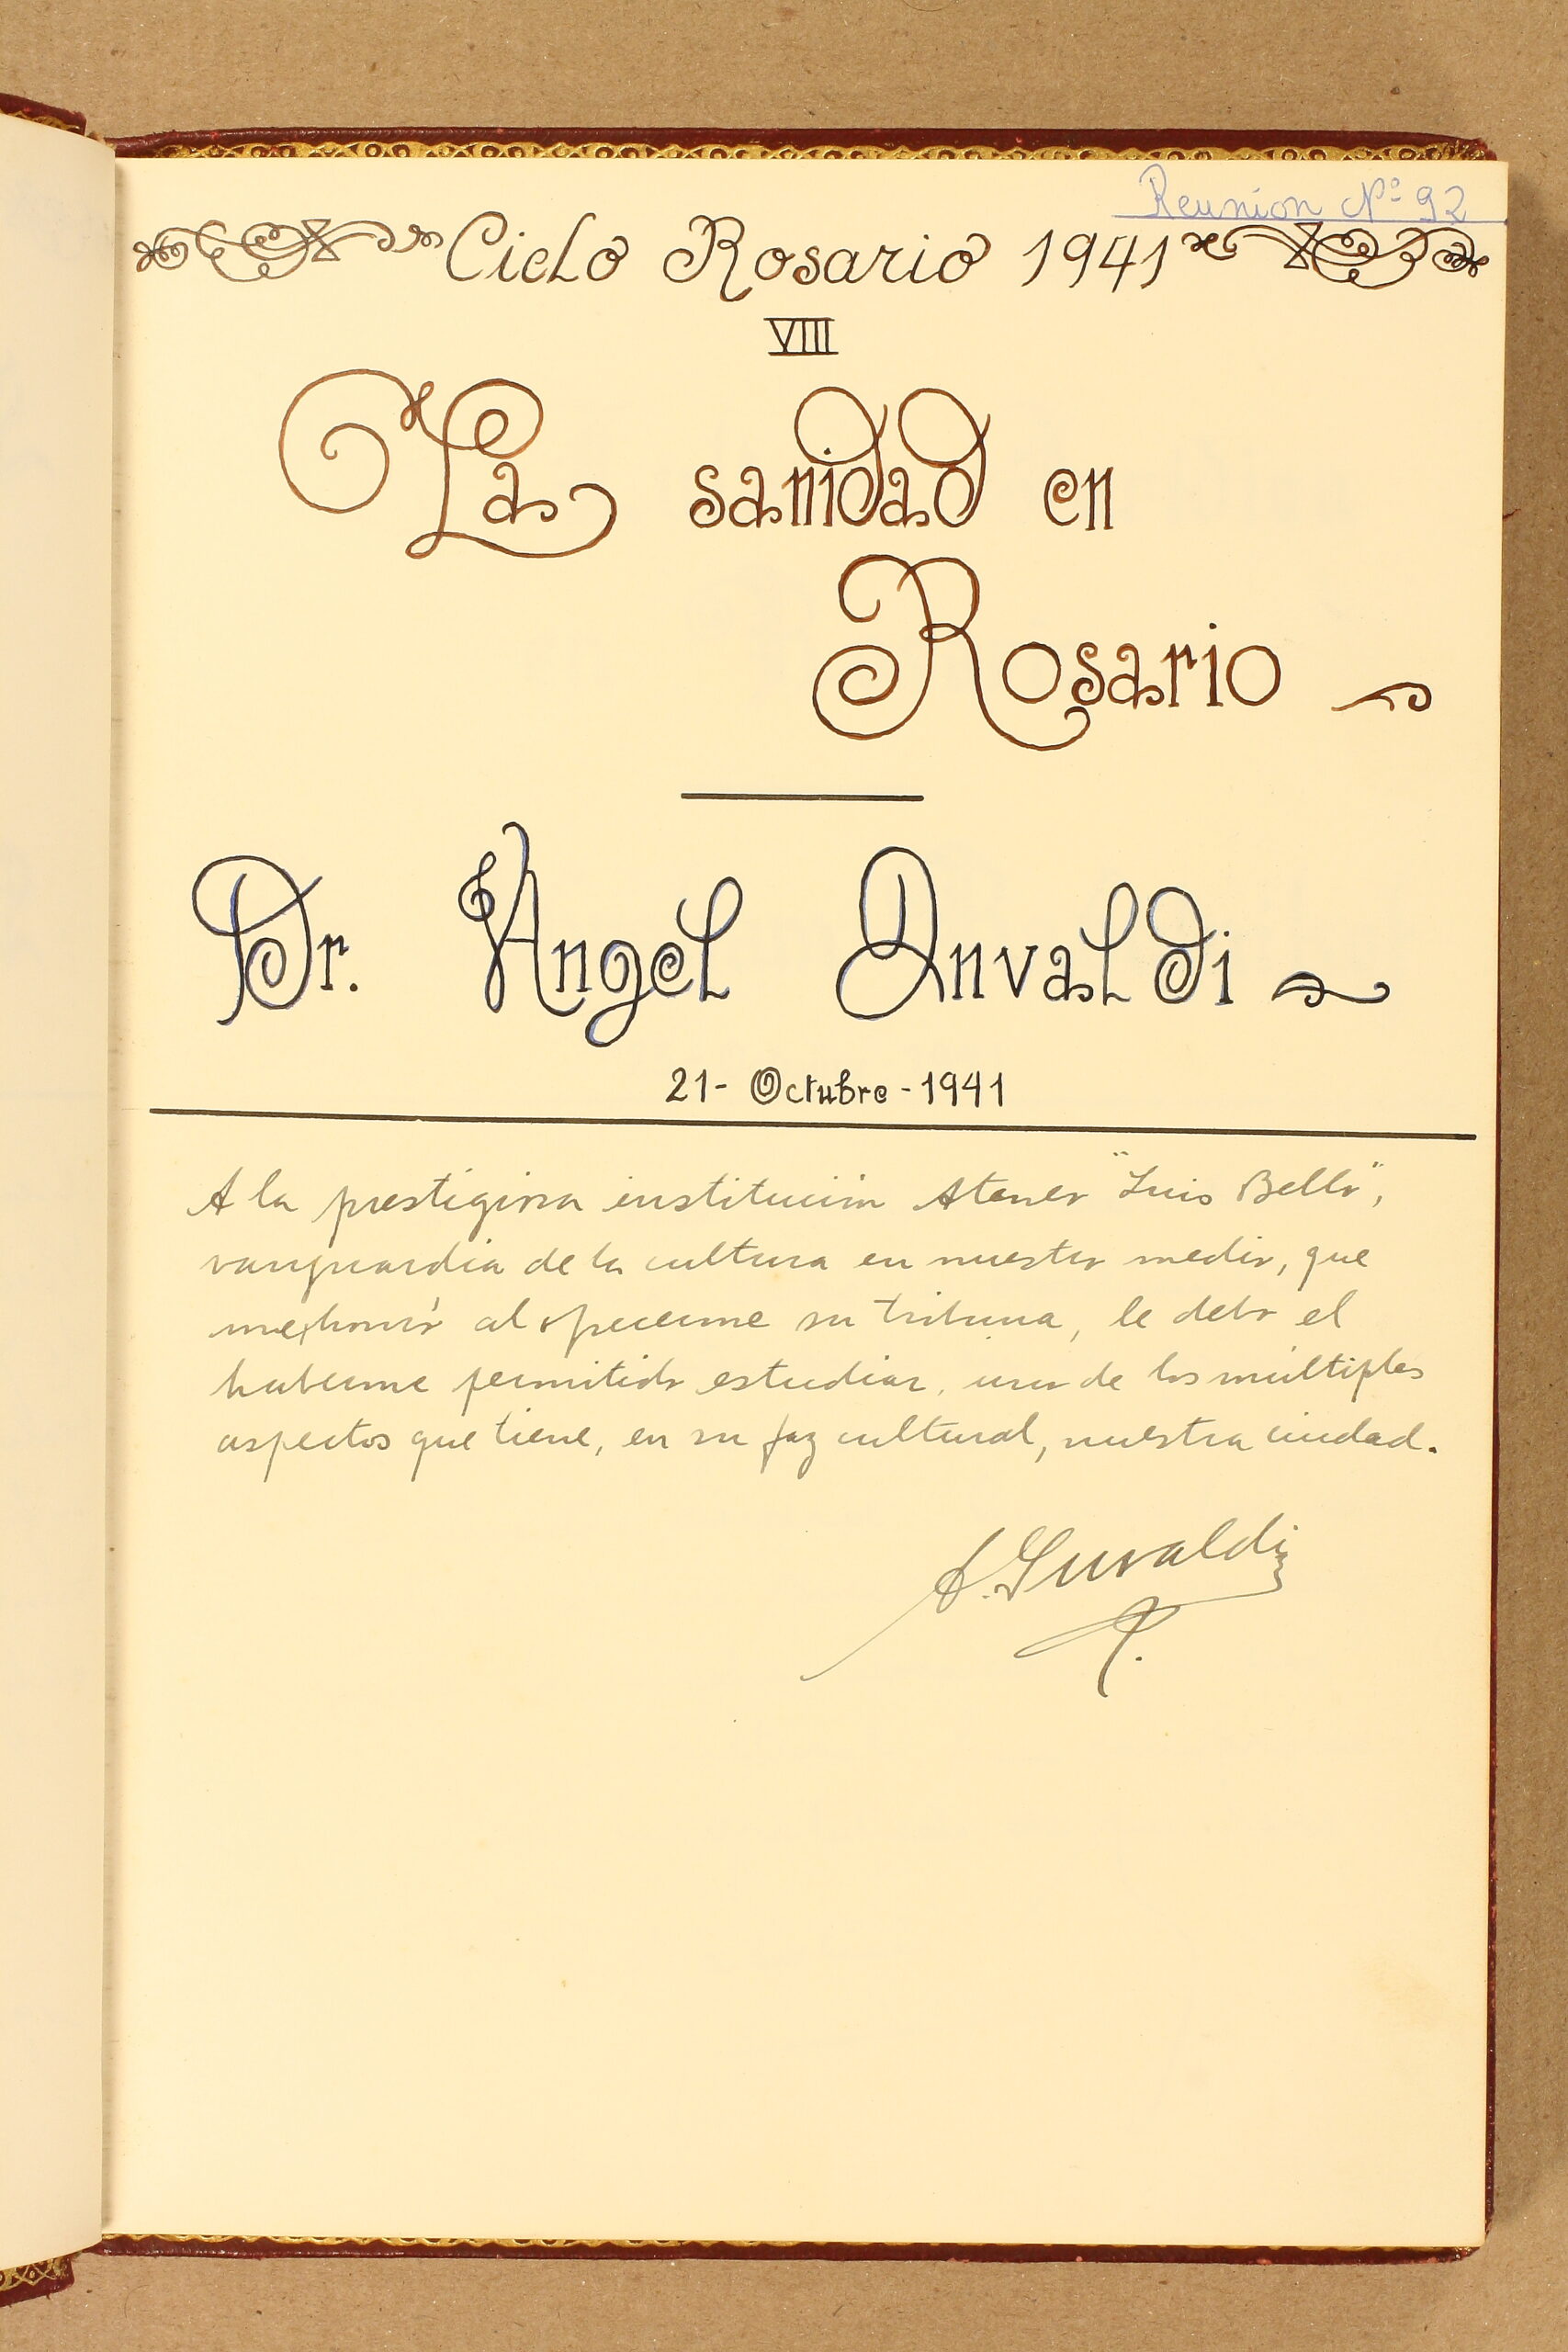 Reunion Nº 92
Ciclo Rosario 1941
VIII
La sanidad en
Rosario
Dr. Angel Invaldi
21- Octubre - 1941
A la prestigiosa institución Ateneo "Luis Bello",
vanguardia de la cultura en nuestro medio, que
me honró al ofrecerme su tribuna, le debo el
haberme permitido estudiar, uno de los múltiples
aspectos que tiene, en su faz cultural, nuestra ciudad.
A. Invaldi